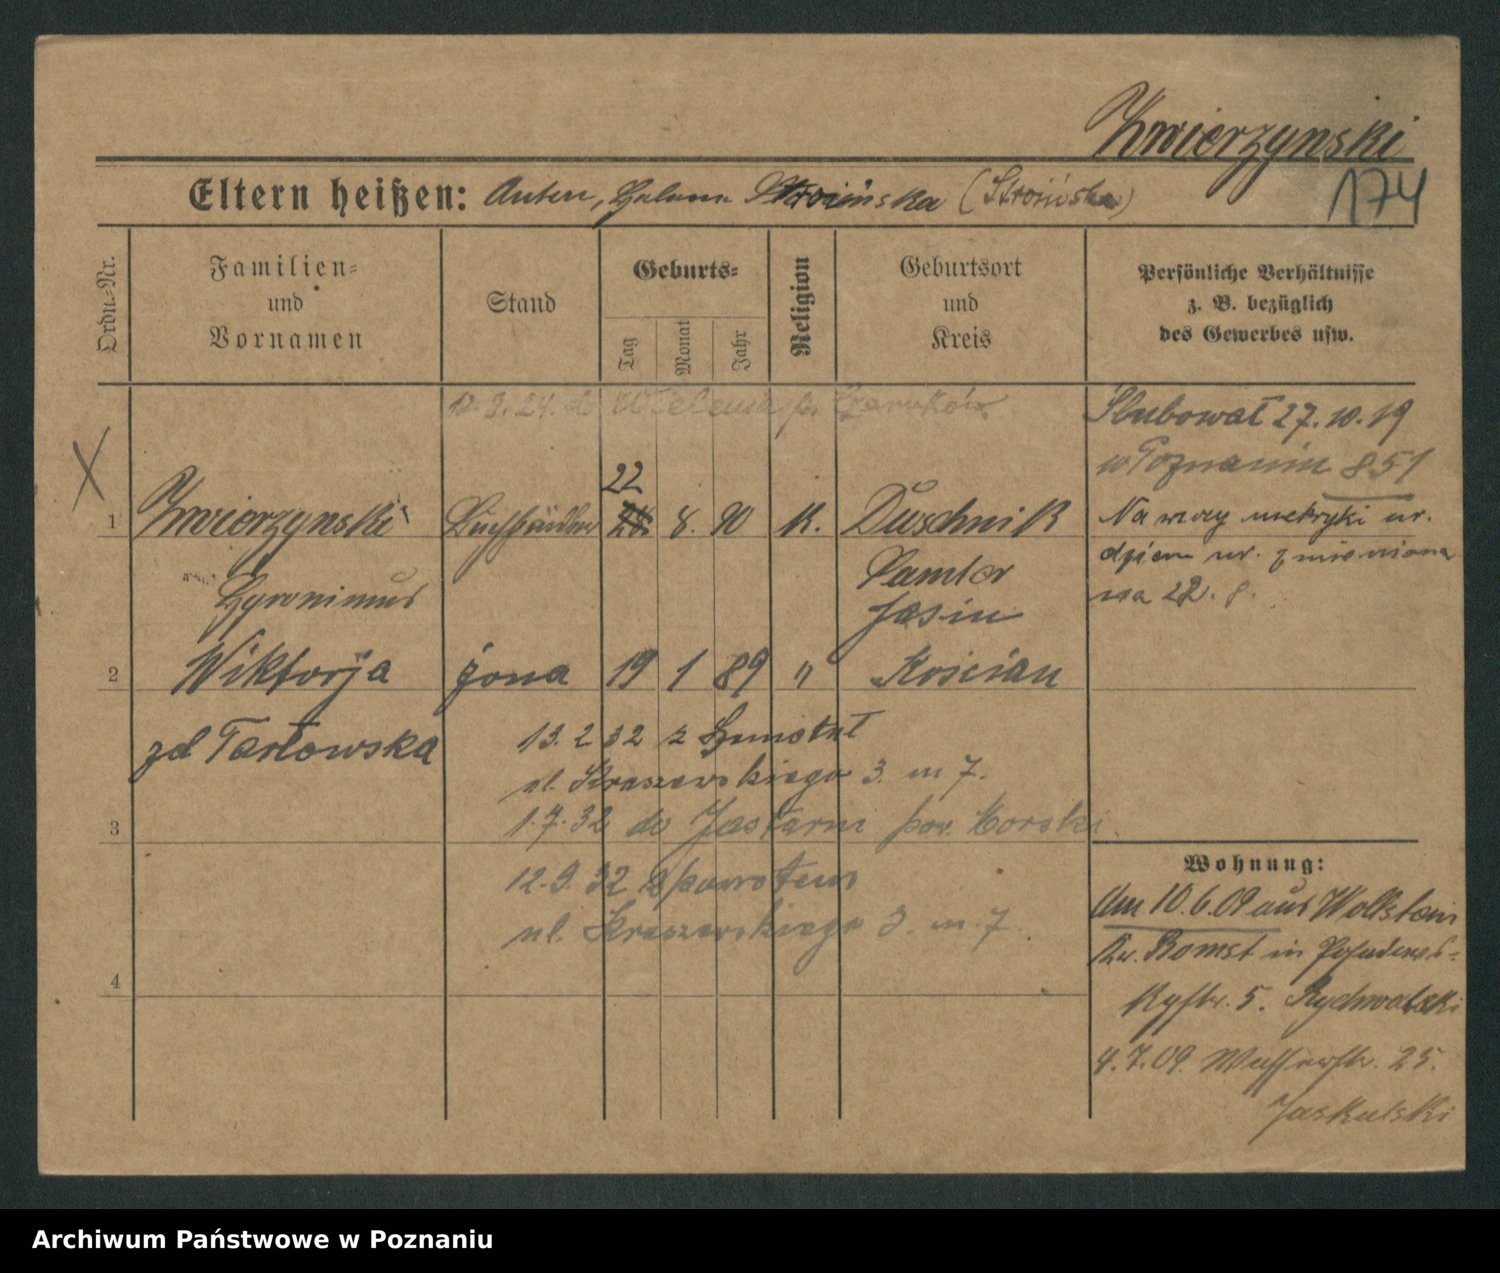 Zwierzynski
174
Eltern heißen: Anton, Helena Stroińska (Stroińska)
Ordn.-Nr.
Familien- und Vornamen
Stand
Geburts-
Tag
Monat
Jahr
Religion
Geburtsort und Kreis
Persönliche Verhältnisse
z. B. bezüglich
des Gewerbes usw.
10.9.24. do Wielenia p. Czarnków
Ślubował 27.10.19
w Poznaniu 851
22
1 Zwierzynski Buchhändler 8. 90 K. Duschnik
Hyronimus
Samter
Jasin
Na mocy metryki ur.
dzień ur. zmieniona
na 22. 8.
2 Wiktorja żona 19 1 89 " Kościan
zd Tarłowska
13.2 32 z
ul. Kraszewskiego 3. m 7.
3
1.7.32 do Jastarni pow. Morski.
12.9.32 z powrotem
ul. Kraszewskiego 3. m. 7
4
Wohnung:
Am 10.6.09 aus Wollstein
Kr. Bomst in Posadows-
kystr. 5. Rychwalski
4.7.09 Wasserstr. 25.
Jaskulski
Archiwum Państwowe w Poznaniu